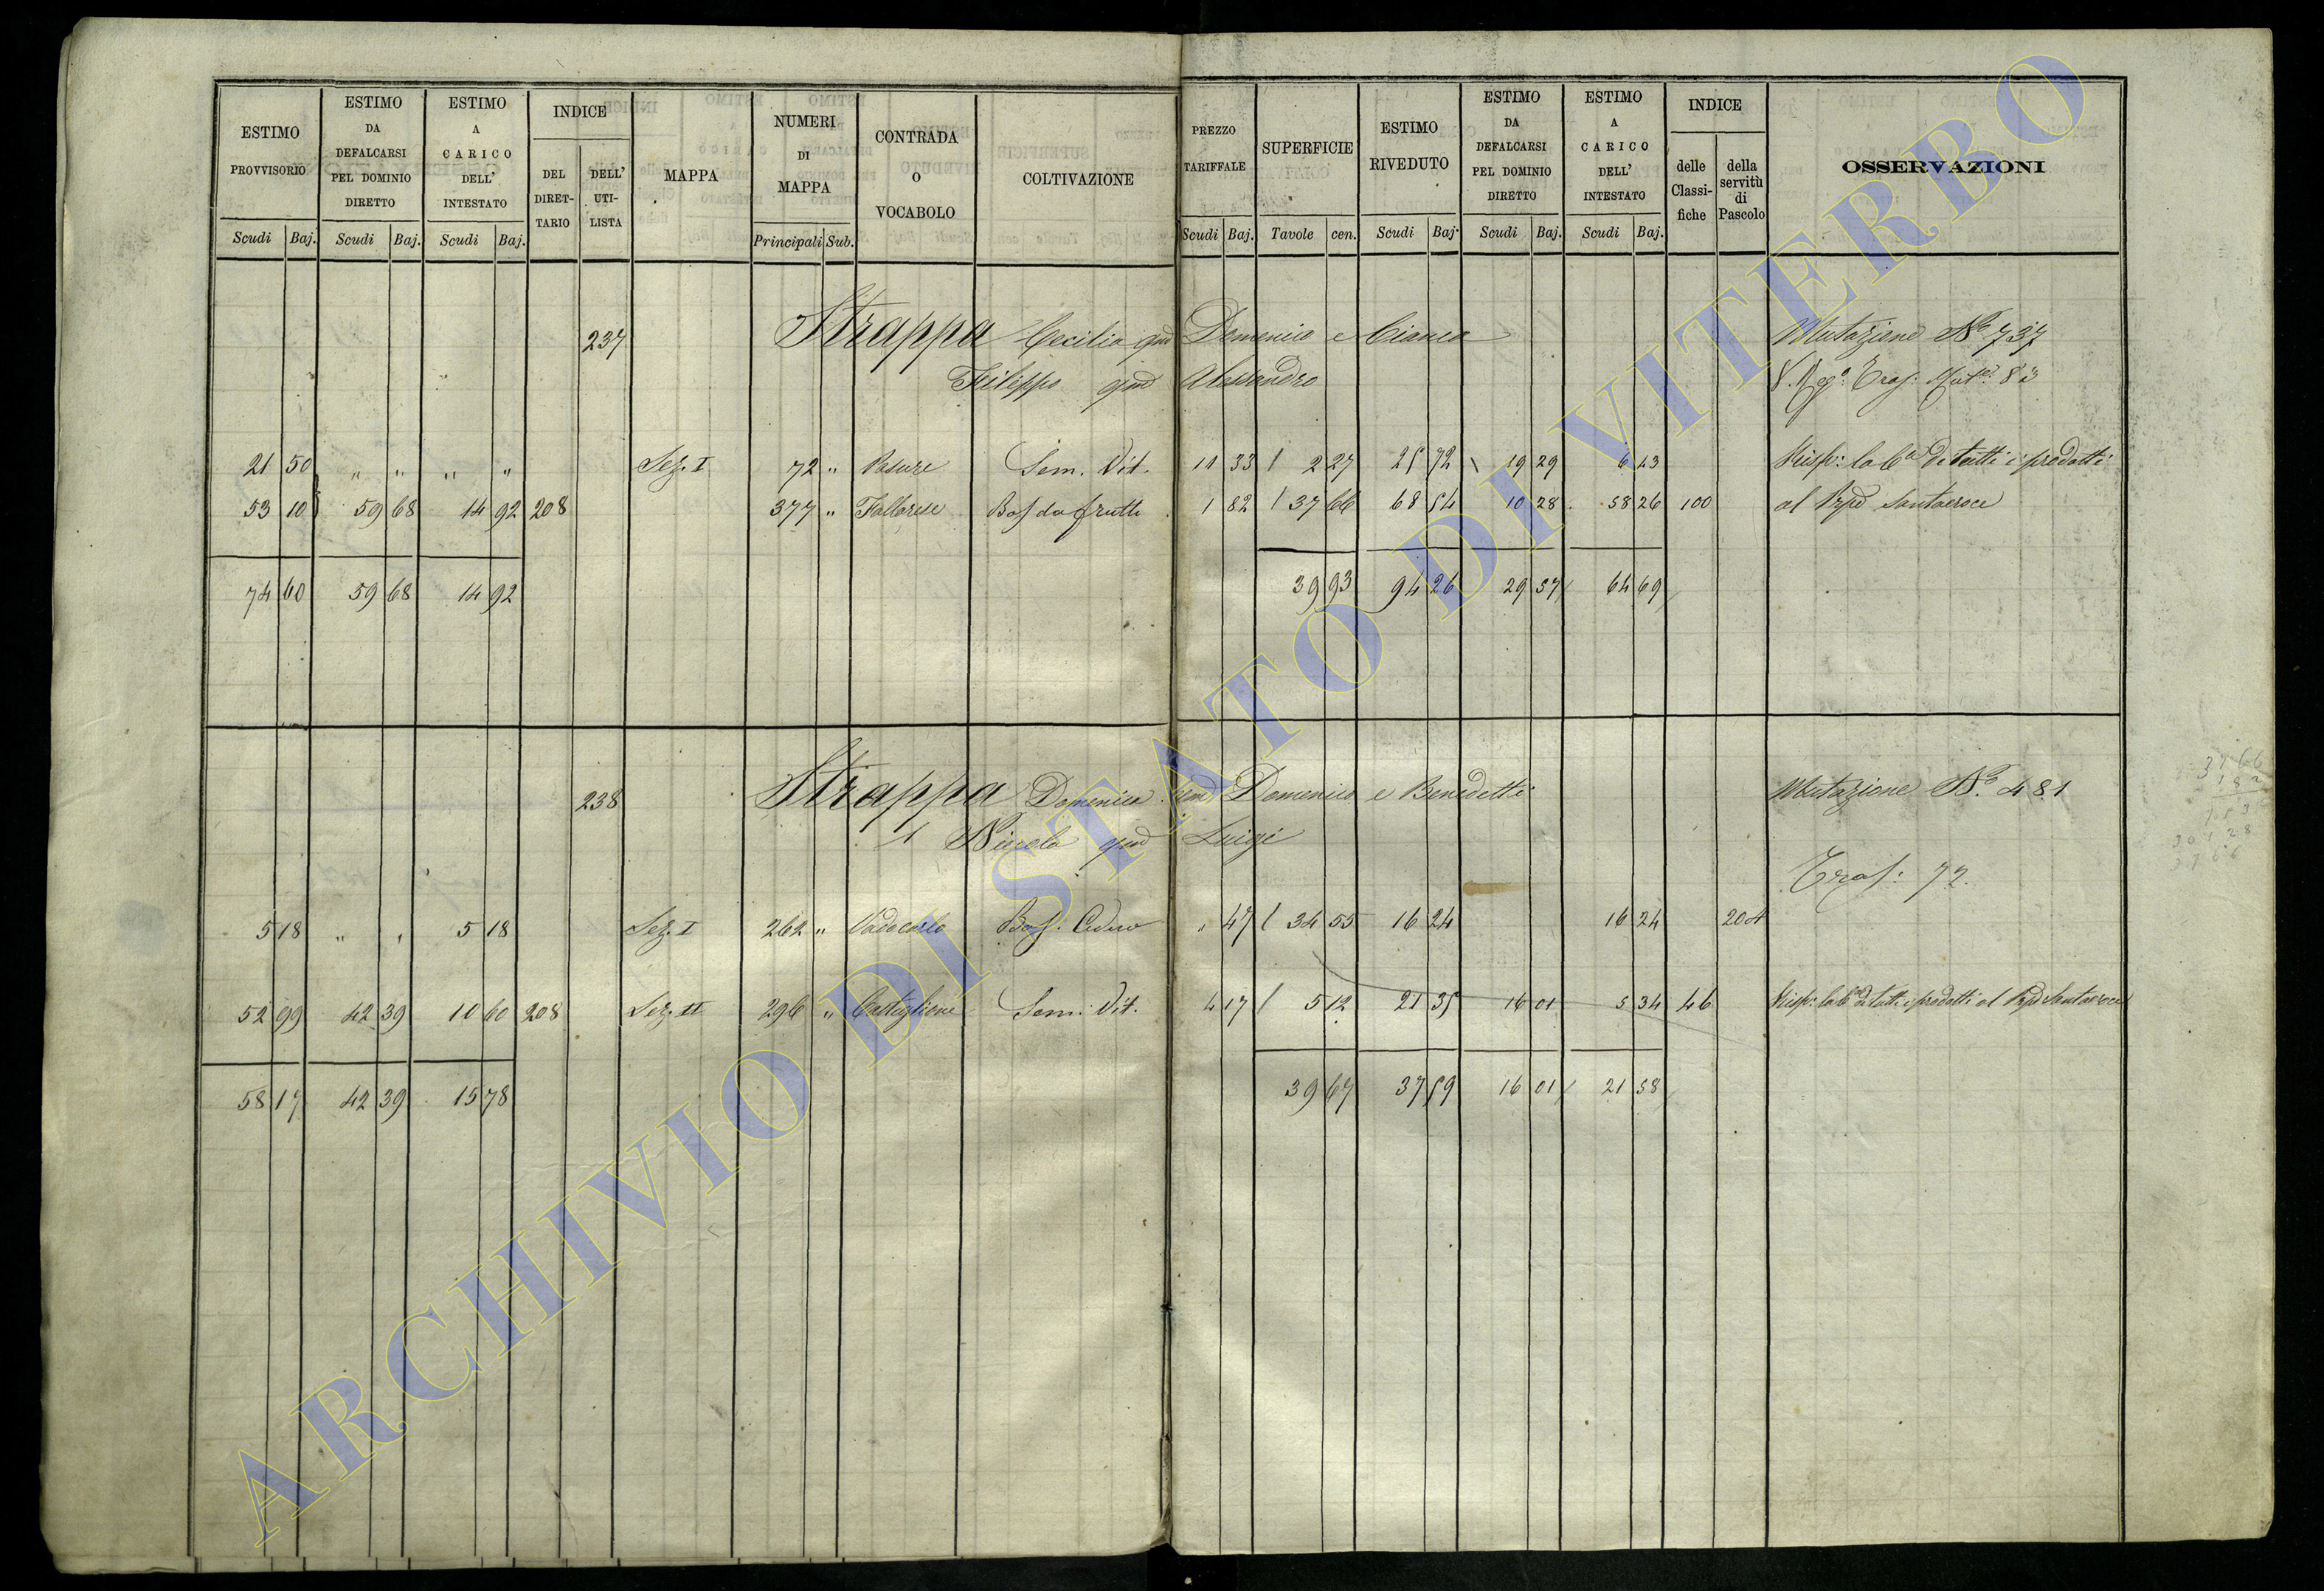 ESTIMO PROVVISORIO Scudi Baj.
ESTIMO DA DEFALCARSI PEL DOMINIO DIRETTO Scudi Baj.
ESTIMO A CARICO DELL' INTESTATO Scudi Baj.
INDICE DEL DIRETTARIO DELL' UTILISTA
MAPPA
NUMERI DI MAPPA Principali Sub.
CONTRADA O VOCABOLO
COLTIVAZIONE
PREZZO TARIFFALE Scudi Baj.
SUPERFICIE Tavole cen.
ESTIMO RIVEDUTO Scudi Baj.
ESTIMO DA DEFALCARSI PEL DOMINIO DIRETTO Scudi Baj.
ESTIMO A CARICO DELL' INTESTATO Scudi Baj.
INDICE delle Classifiche della servitù di Pascolo
OSSERVAZIONI
237 Strappa Cecilia qm Domenico e Cianca Mutazione No 737
Filippo qm Alessandro
21 50 " " " " Sez. I 72 " Sem. Vit. 11 33 2 27 25 72 19 29 6 43 Risp: la 6a di tutti i prodotti
53 10 59 68 14 92 208 377 " Bos da frutto 1 82 37 66 68 54 10 28 58 26 100 al Santacroce
74 60 59 68 14 92 39 93 94 26 29 57 64 69
238 Strappa Domenica Domenico e Benedetti Mutazione No 481
Nicola qm Luigi
Tras: 72.
5 18 " " 5 18 Sez. I 262 " Vadocarlo Bos. Ceduo " 47 34 55 16 24 16 24 204
52 99 42 39 10 60 208 Sez. II 296 " Castiglione Sem. Vit. 4 17 5 12 21 35 16 01 5 34 46 Risp: la 6a di tutti i prodotti al Santacroce
58 17 42 39 15 78 39 67 37 59 16 01 21 58
ARCHIVIO DI STATO DI VITERBO